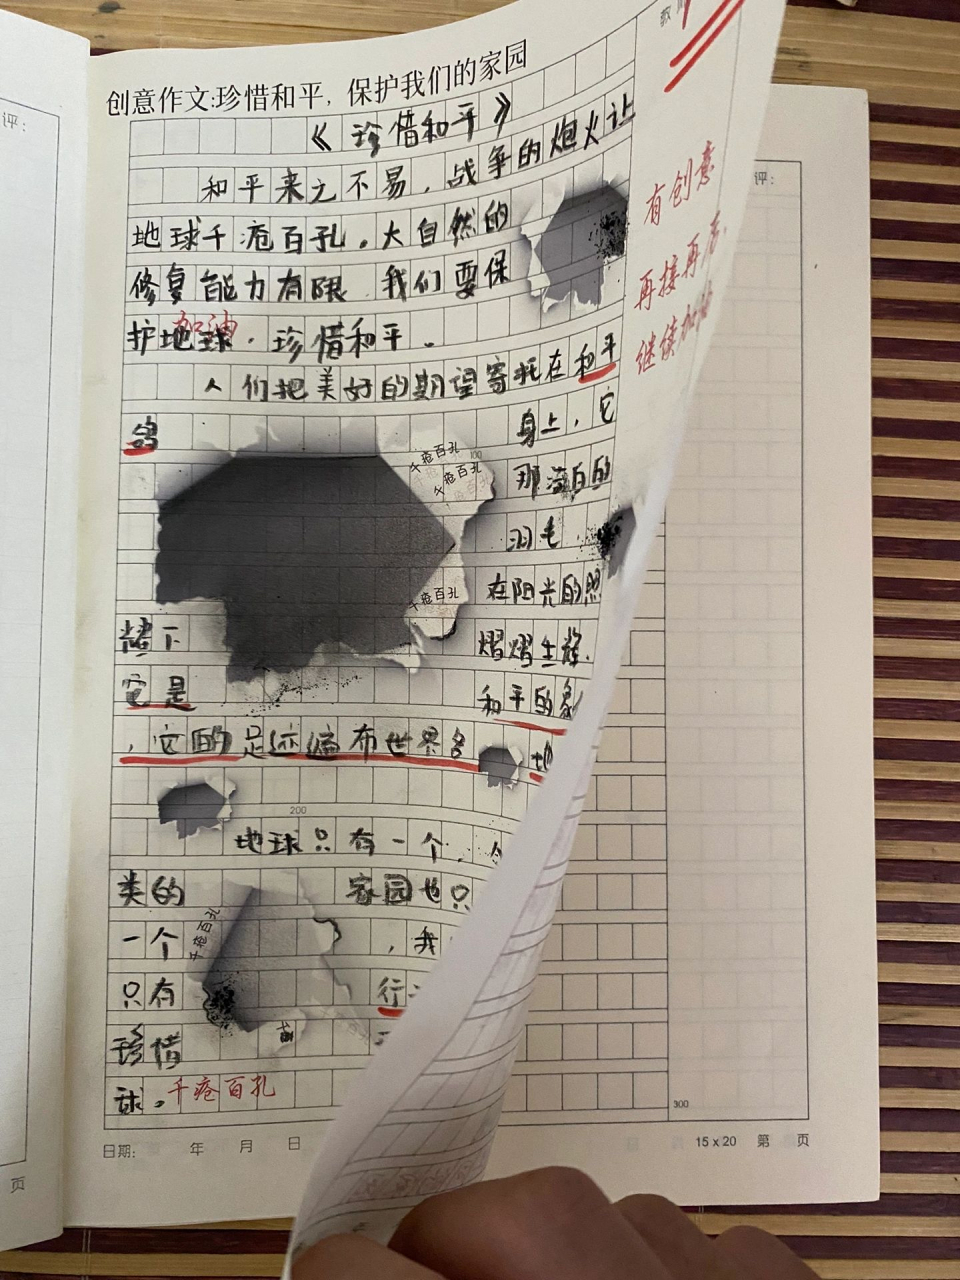 评:
教
创意作文:珍惜和平，保护我们的家园
《珍惜和平》
和平来之不易，战争的炮火让
地球千疮百孔。大自然的
修复能力有限 我们要保
护地球．珍惜和平．
加油
人们把美好的期望寄托在和平
鸽 身上，它
那洁白的
羽毛
在阳光的照
耀下 熠熠生辉．
它是 和平的象
，它的足迹遍布世界各 地
地球只有一个．
类的 家园也只
一个 ，我
只有 行
珍惜
球．
千疮百孔
千疮百孔
千疮百孔
千疮百孔
千疮百孔
100
200
300
有创意
再接再厉
继续加油
评:
日期: 年 月 日
15 x 20 第 页
页